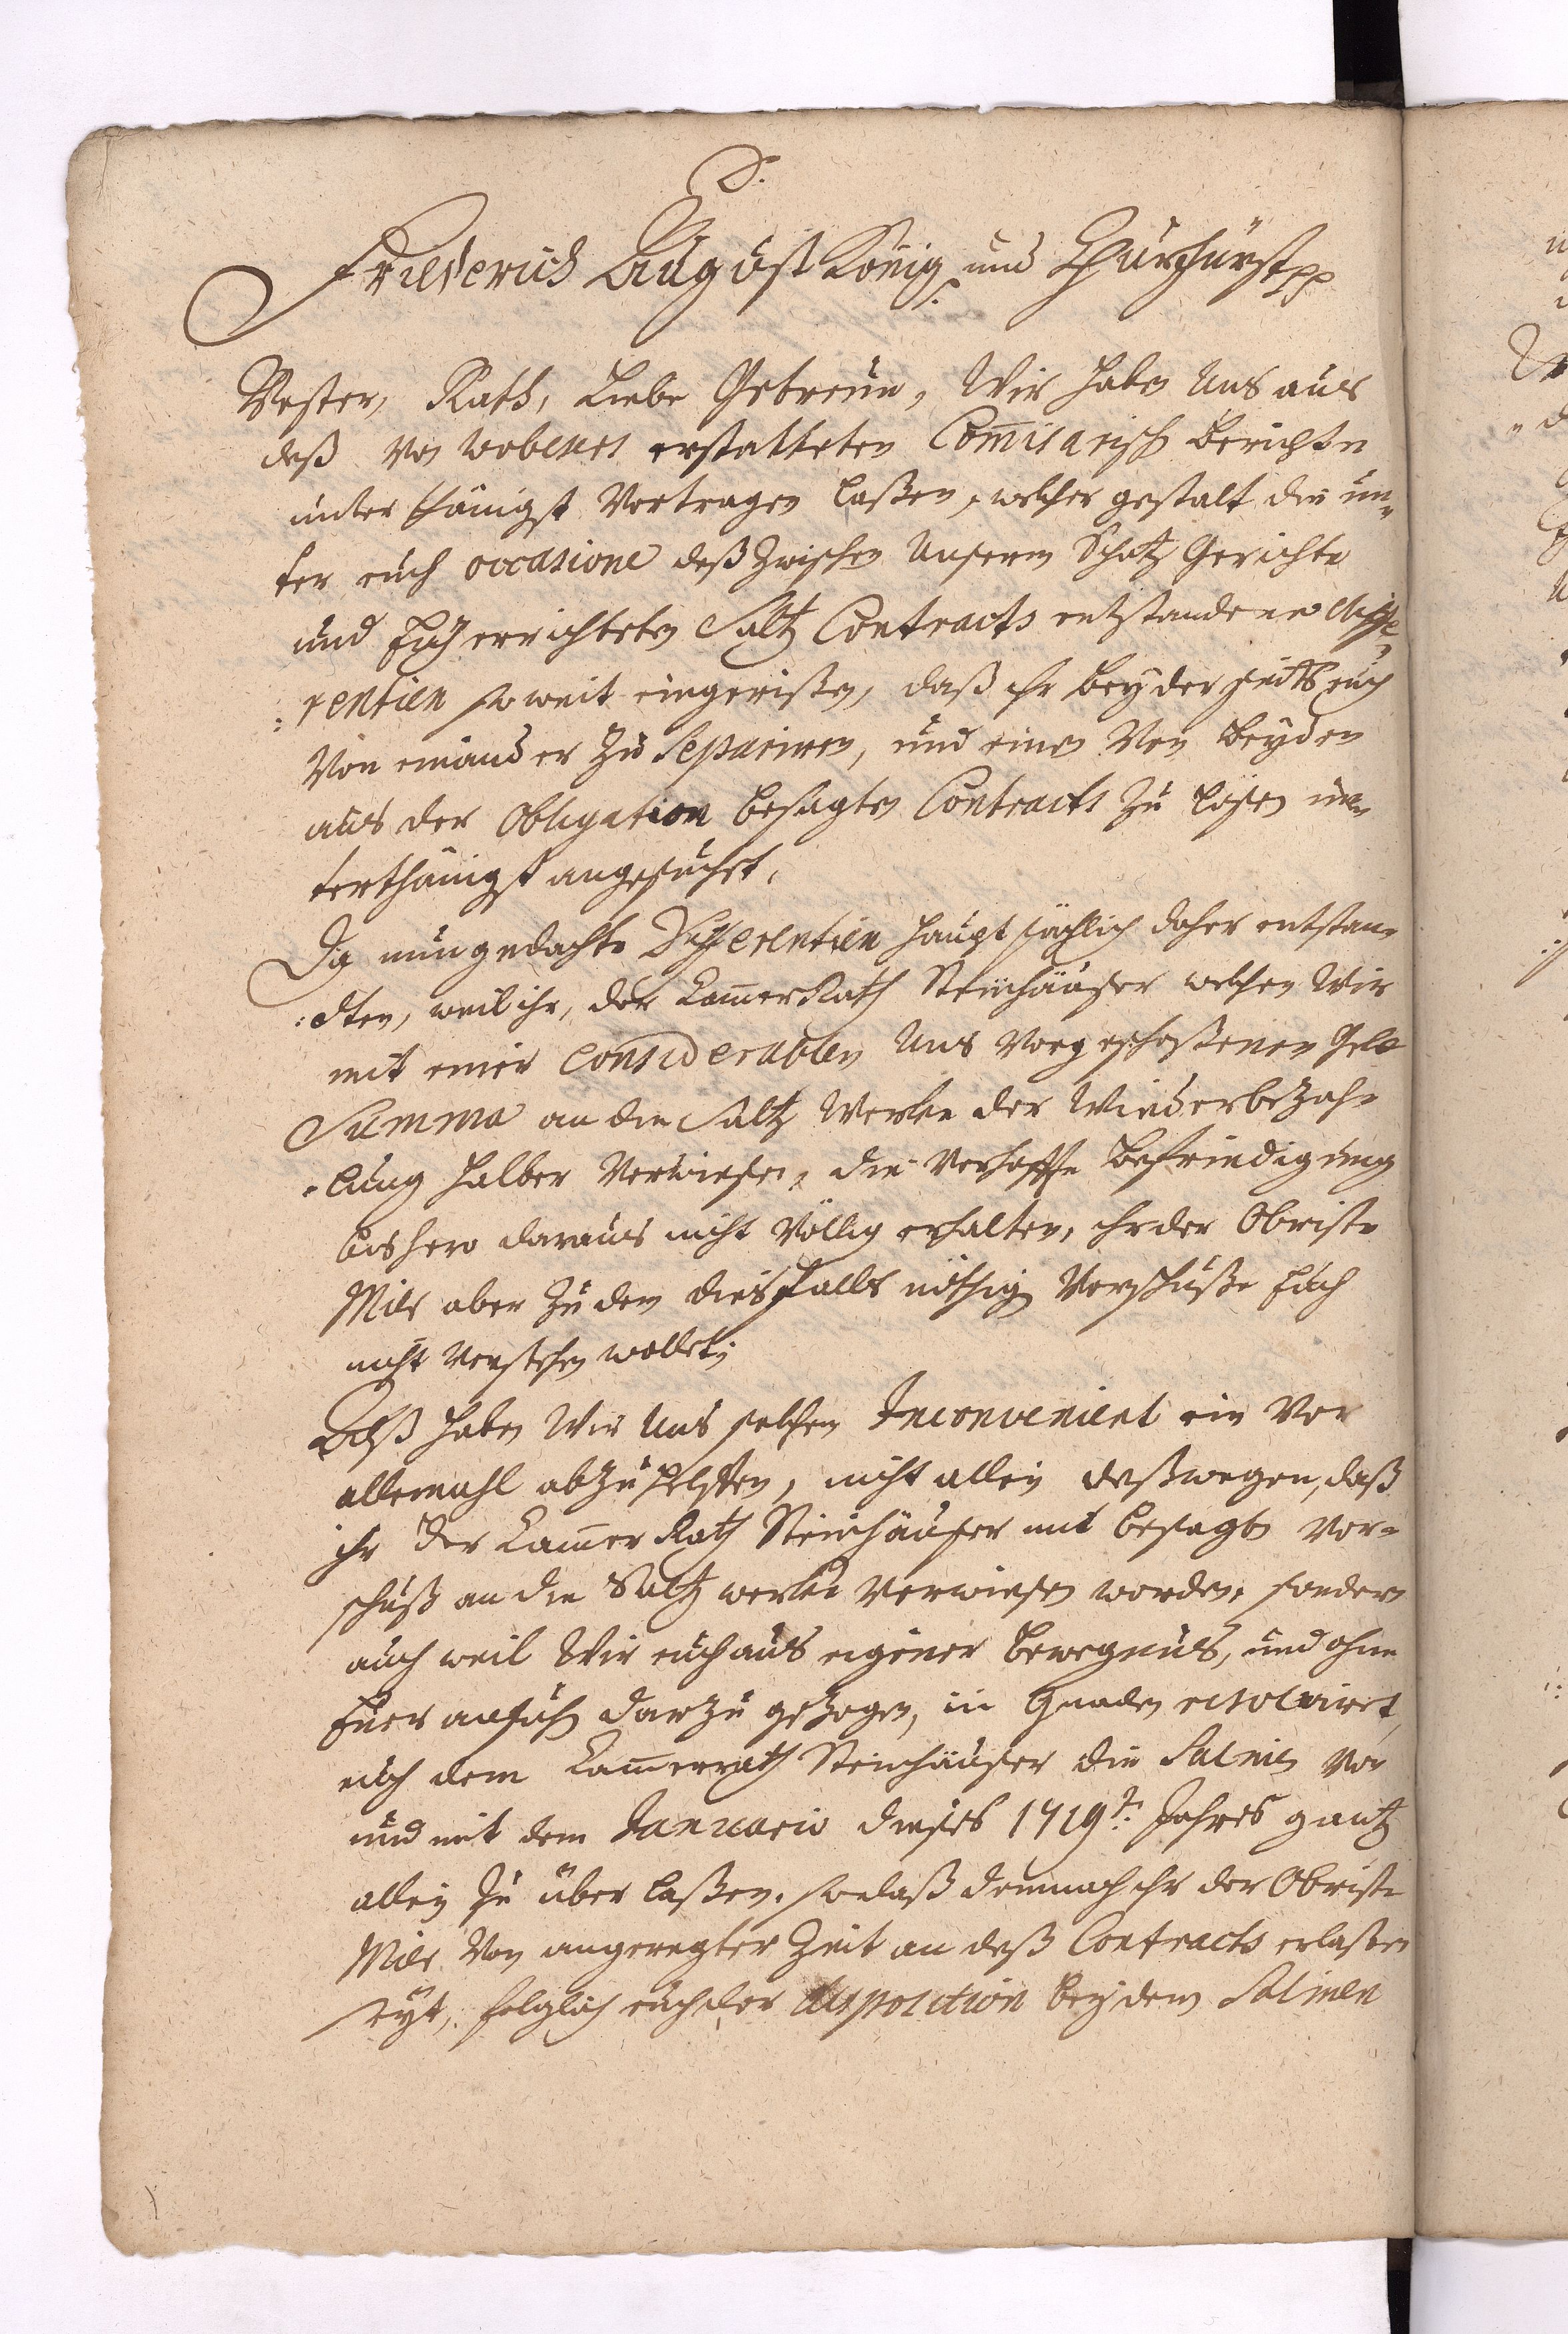 D.
Friederich August König und Churfürst pp
Vester, Rath, Liebe Getreue, Wir haben Uns aus
deß von wobeners erstatteten Com̃isarisch Berichte
unterthänigst Vortragen laßen, welcher gestalt die un„
ter euch occasione deß zwischen Unserm Schatz Gerichte
und Euch errichteten Saltz Contracts entstandene diffe„
:rentien so weit eingerißen, daß ihr beyderseits euch
Von einander zu separiren, und einen Von beyden
aus der Obligation besagten Contracts zu laßen un„
terthänigst angesuchet.
Da nun gedachte Differentien haupt sächlich daher entstan„
:dten, weil ihr, der Cam̃er Rath Steinhäußer welchen Wir
mit einer considerablen Uns Vorgeschoßenen Geld
Summa an die Saltz Wercke der Wiederbezah„
„lung halber Verwiesen, die verhoffte Befriedigung
bishero daraus nicht Völlig erhalten, ihr der Obriste
Milr aber zu den diesfalls nöthig Vorschuße Euch
nicht verstehen wollet;
Alß haben Wir Uns solchen Inconvenient ein Vor
allemahl abzuhelffen, nicht allein deßwegen, daß
ihr der Cam̃er Rath Steinhäußer mit besagten Vor„
schuß an die Saltz wercke verwiesen worden, sondern
auch weil Wir euch aus eigener Bewegnüs, und ohne
Euer ansuch darzu gezogen, in Gnaden resolviret,
euch dem Cam̃errath Steinhäußer die Salinen Von
und mit dem Januario dieses 1719t. Jahres gantz
allein zu über laßen. so daß demnach ihr der Obriste
Milr Von angeregter Zeit an deß Contracts erlaßen
seyt, folglich euch der disposition bey denen Salinen